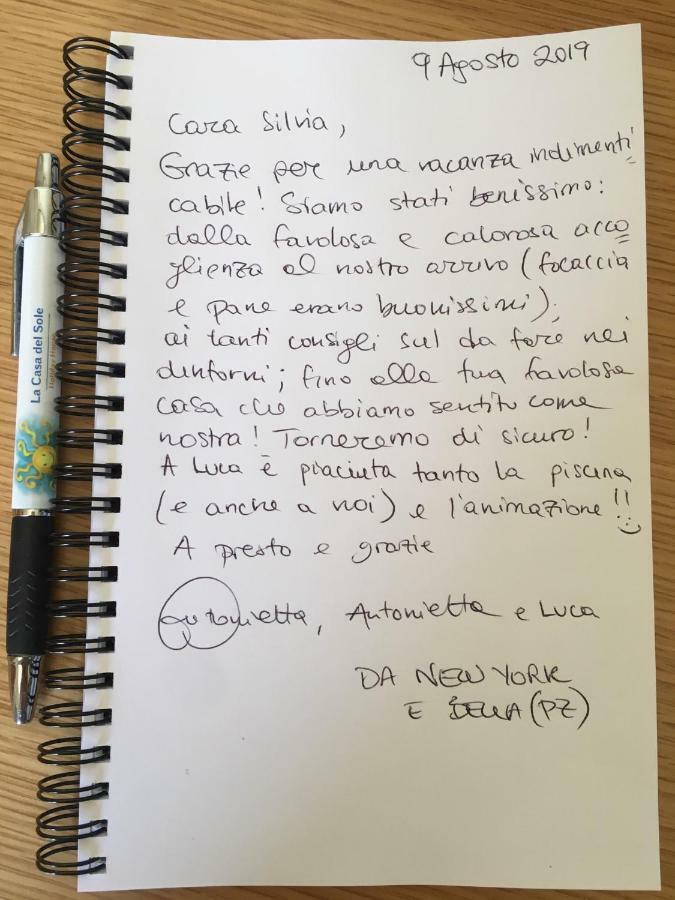 9 Agosto 2019
Cara Silvia,
Grazie per una vacanza indimenti
cabile! Siamo stati benissimo:
dalla favolosa e calorosa acco
glienza al nostro arrivo (focaccia
e pane erano buonissimi);
ai tanti consigli sul da fare nei
dintorni; fino alla tua favolosa
casa che abbiamo sentito come
nostra! Torneremo di sicuro!
A Luca è piaciuta tanto la piscina
(e anche a noi) e l'animazione!!
A presto e grazie
Antonietta, Antonietta e Luca
DA NEW YORK
E BELLA (PZ)
La Casa del Sole